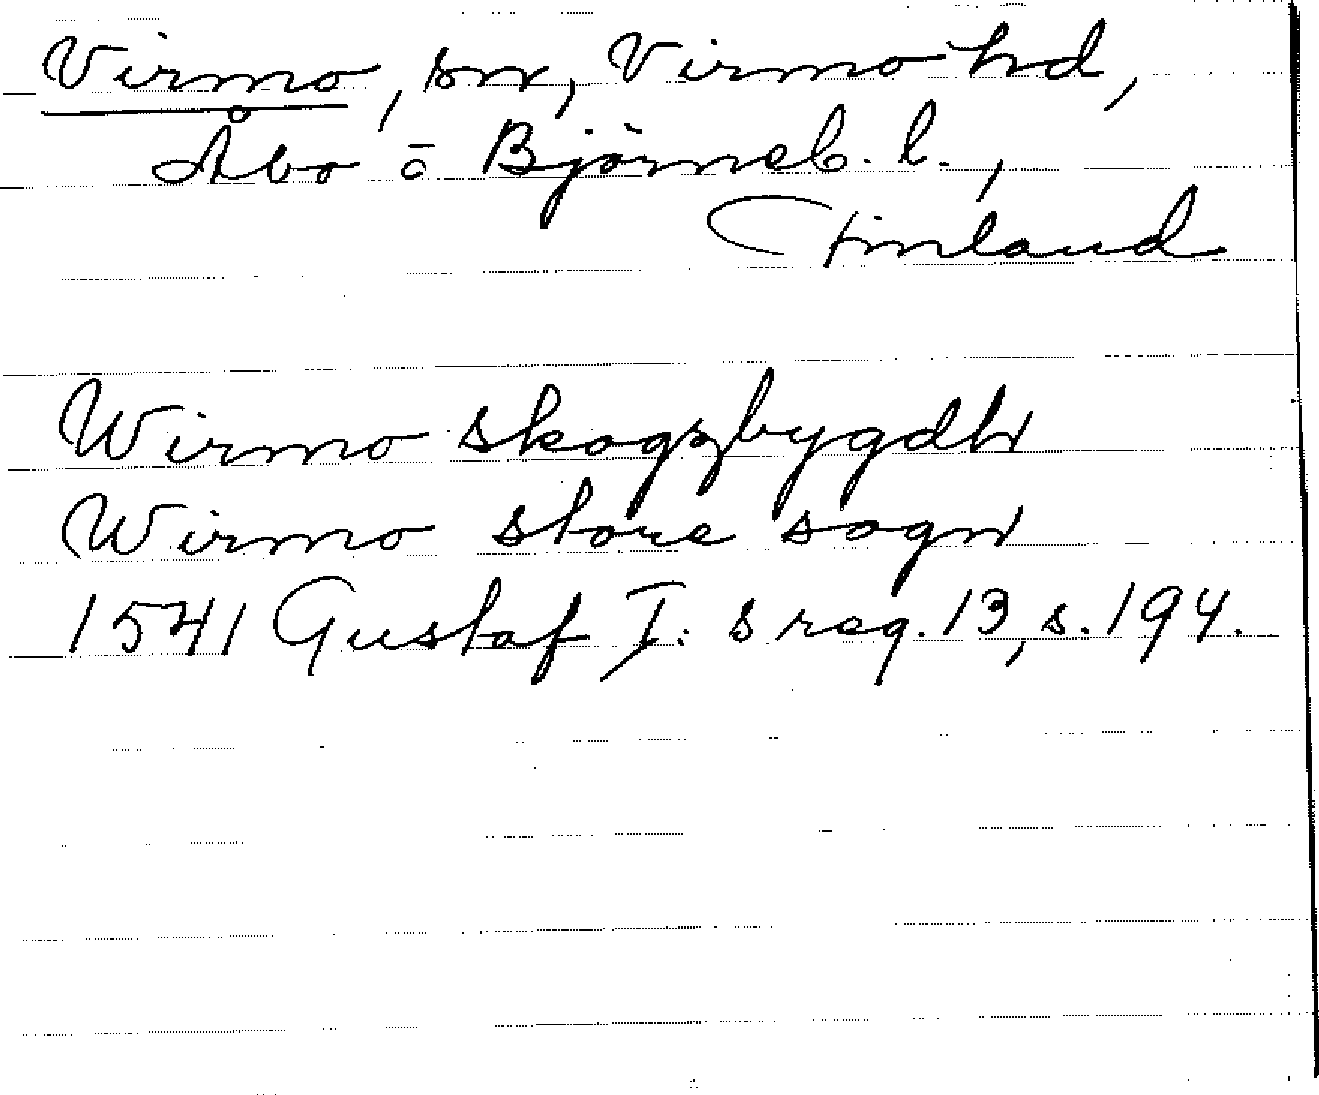 Virmo, sn, Virmo hd,
Åbo o Björneb. l.,
Finland
Wirmo skogzbygdh
Wirmo store sogn
1541 Gustaf I:s reg. 13, s. 194.